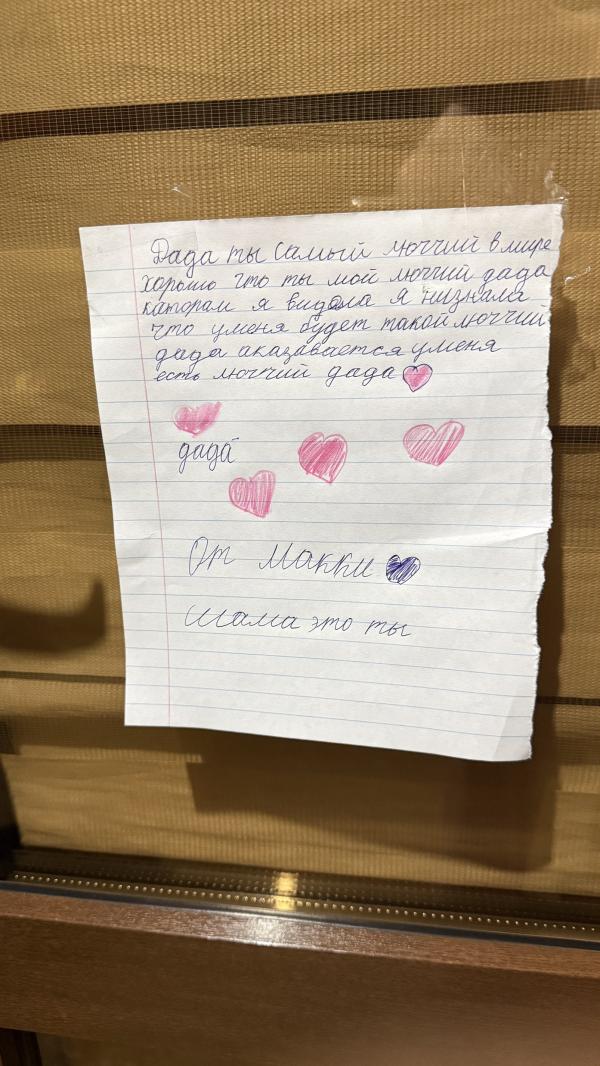 Дада ты самый люччий в мире
хорошо что ты мой люччий дада
каторам я видела я низнала
что уменя будет такой люччий
дада аказавается уменя
есть люччий дада
дада
От Макки
Мама это ты